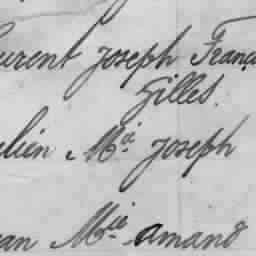 urent joseph Franç
Gilles.
lien Mie joseph
an Mie amand